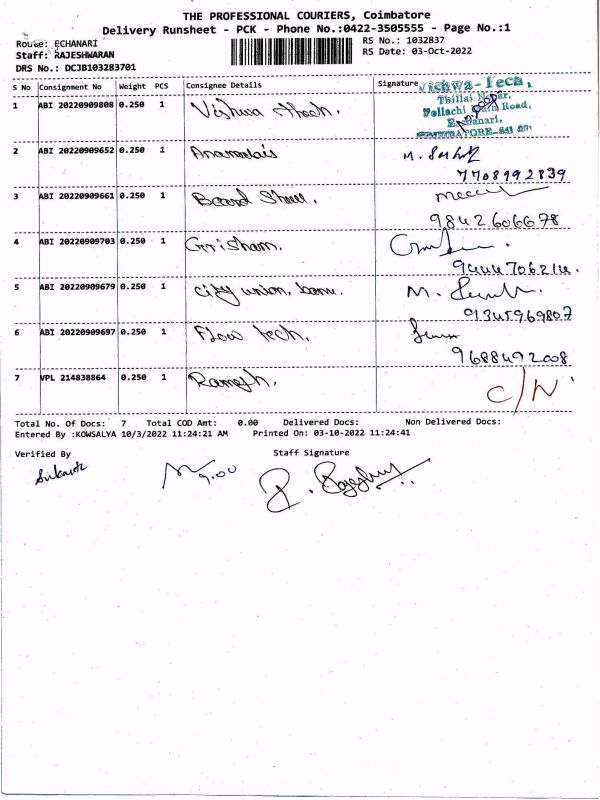 THE PROFESSIONAL COURIERS, Coimbatore
Delivery Runsheet - PCK - Phone No.:0422-3505555 - Page No.:1
Route: ECHANARI
Staff: RAJESHWARAN
DRS No.: DCJB103283701
RS No.: 1032837
RS Date: 03-Oct-2022
S No Consignment No Weight PCS Consignee Details Signature
Vishwa-Tech,
Thillai Nagar,
Pollachi Main Road,
Echanari,
1 ABI 20220909808 0.250 1 Vishwa
2 ABI 20220909652 0.250 1 Annamalais M.
7708992839
3 ABI 20220909661 0.250 1
9842606678
4 ABI 20220909703 0.250 1 Grisham.
9444706214.
5 ABI 20220909679 0.250 1 City union, M.
9345969807
6 ABI 20220909697 0.250 1 Flow tech,
9688492008
7 VPL 214838864 0.250 1 Ramesh. C/N
Total No. Of Docs: 7 Total COD Amt: 0.00 Delivered Docs: Non Delivered Docs:
Entered By :KOWSALYA 10/3/2022 11:24:21 AM Printed On: 03-10-2022 11:24:41
Verified By Staff Signature
9.00